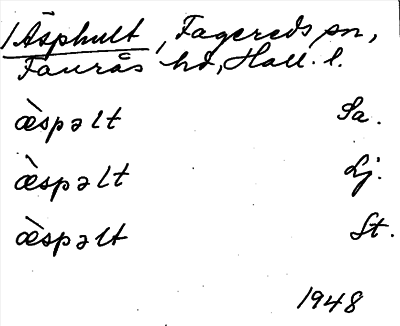 /Äsphult, Fagereds sn,
Faurås hd, Hall. l.
æ̀spəlt Sa.
æ̀spəlt Lj.
æ̀spəlt St.
1948